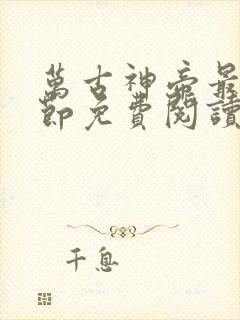 萬古神帝最
節免費閱讀
千息